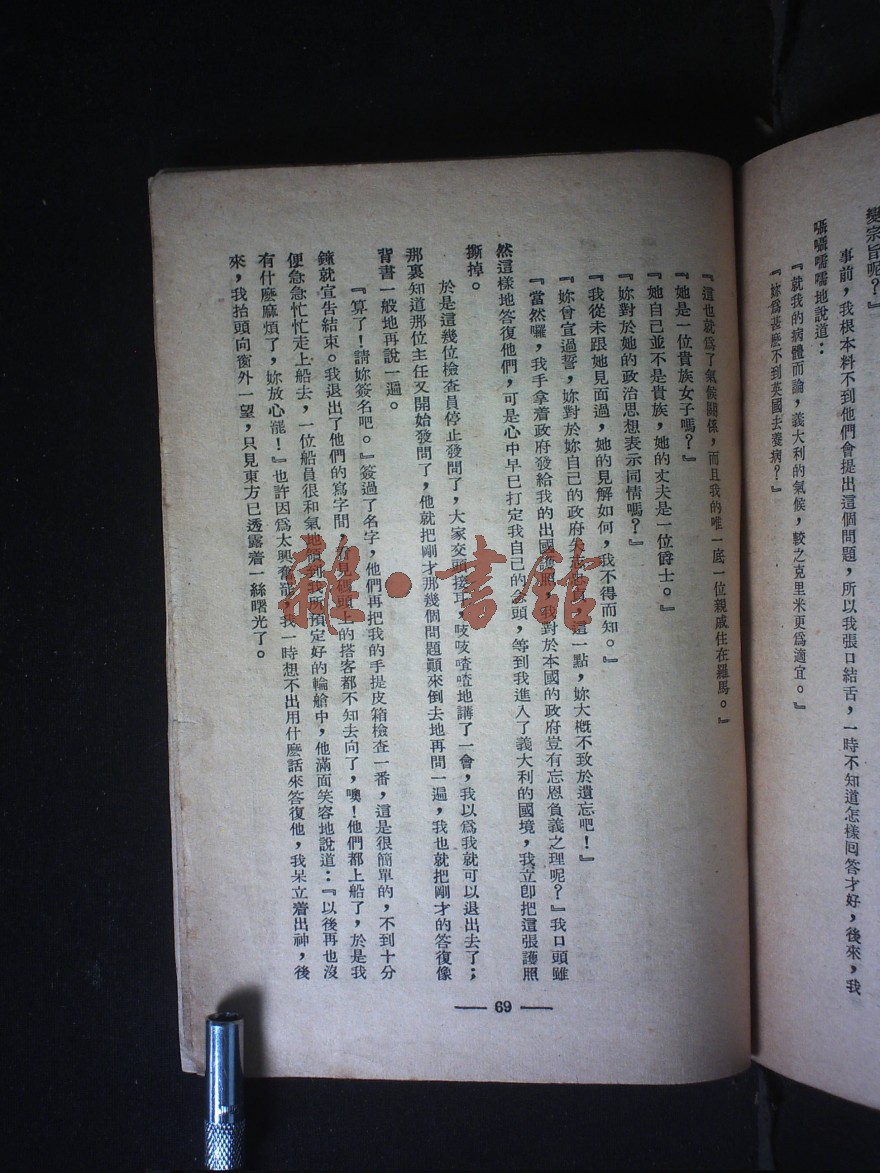 變宗旨呢？』
事前，我根本料不到他們會提出這個問題，所以我張口結舌，一時不知道怎樣囘答才好，後來，我
囁囁嚅嚅地說道：
『就我的病體而論，義大利的氣候，較之克里米更爲適宜。』
『妳爲甚麽不到英國去養病？』
『這也就爲了氣候關係，而且我的唯一底一位親戚住在羅馬。』
『她是一位貴族女子嗎？』
『她自己並不是貴族，她的丈夫是一位爵士。』
『妳對於她的政治思想表示同情嗎？』
『我從未跟她見面過，她的見解如何，我不得而知。』
『妳曾宣過誓，妳對於妳自己的政府矢志忠貞，這一點，妳大槪不致於遺忘吧！』
『當然囉，我手拿着政府發給我的出國護照，我對於本國的政府豈有忘恩負義之理呢？』我口頭雖
然這樣地答復他們，可是心中早已打定我自己的念頭，等到我進入了義大利的國境，我立卽把這張護照
撕掉。
於是這幾位檢查員停止發問了，大家交頭接耳，吱吱喳喳地講了一會，我以爲我就可以退出去了；
那裏知道那位主任又開始發問了，他就把剛才那幾個問題顚來倒去地再問一遍，我也就把剛才的答復像
背書一般地再說一遍。
『算了！請妳簽名吧。』簽過了名字，他們再把我的手提皮箱檢查一番，這是很簡單的，不到十分
鐘就宣告結束。我退出了他們的寫字間，看見碼頭上的搭客都不知去向了，噢！他們都上船了，於是我
便急急忙忙走上船去，一位船員很和氣地領到我所預定好的輪艙中，他滿面笑容地說道：『以後再也沒
有什麽麻煩了，妳放心罷！』也許因爲太興奮罷，我一時想不出用什麽話來答復他，我呆立着出神，後
來，我抬頭向窗外一望，只見東方已透露着一絲曙光了。
— 69 —
雜·書館